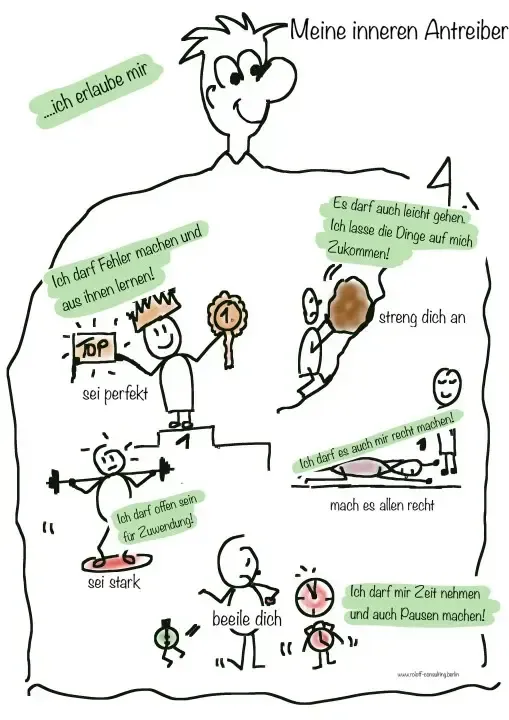 Meine inneren Antreiber
....ich erlaube mir
Es darf auch leicht gehen.
Ich lasse die Dinge auf mich
Zukommen!
Ich darf Fehler machen und
aus ihnen lernen!
TOP
1.
streng dich an
sei perfekt
1
Ich darf es auch mir recht machen!
mach es allen recht
Ich darf offen sein
für Zuwendung!
sei stark
beeile dich
Ich darf mir Zeit nehmen
und auch Pausen machen!
www.roloff-consulting.berlin